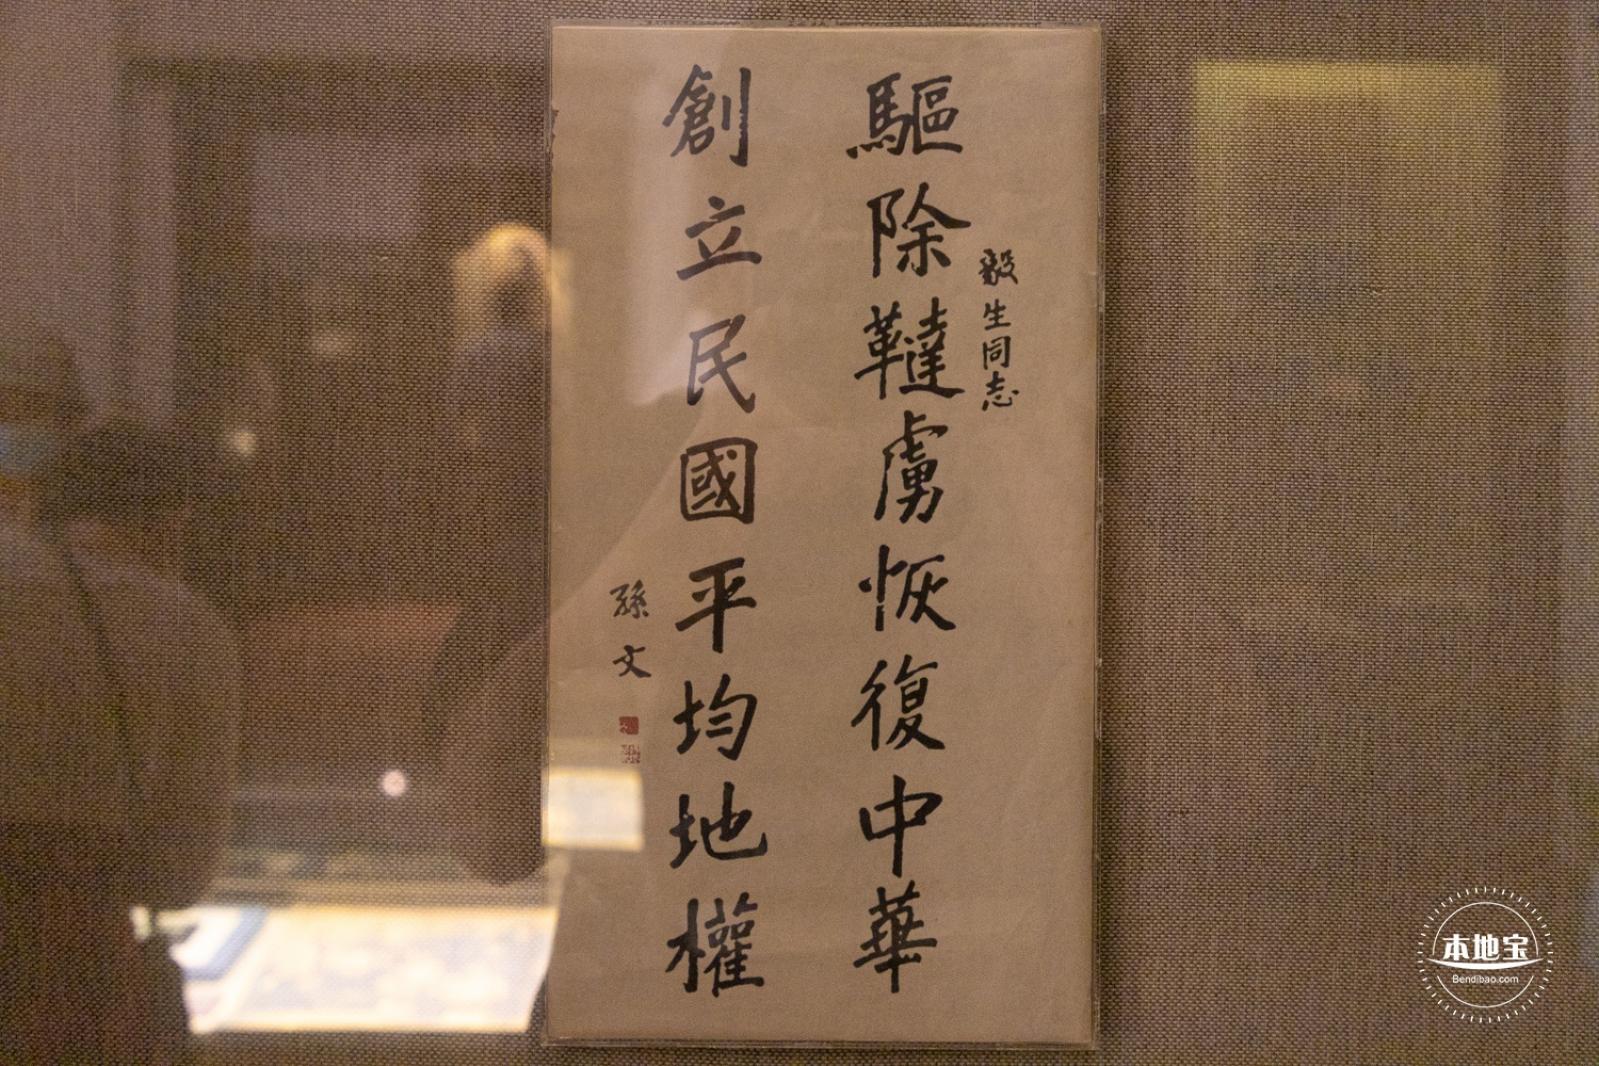 毅生同志
驅除韃虜恢復中華
創立民國平均地權
孫文
本地宝
Bendibao.com